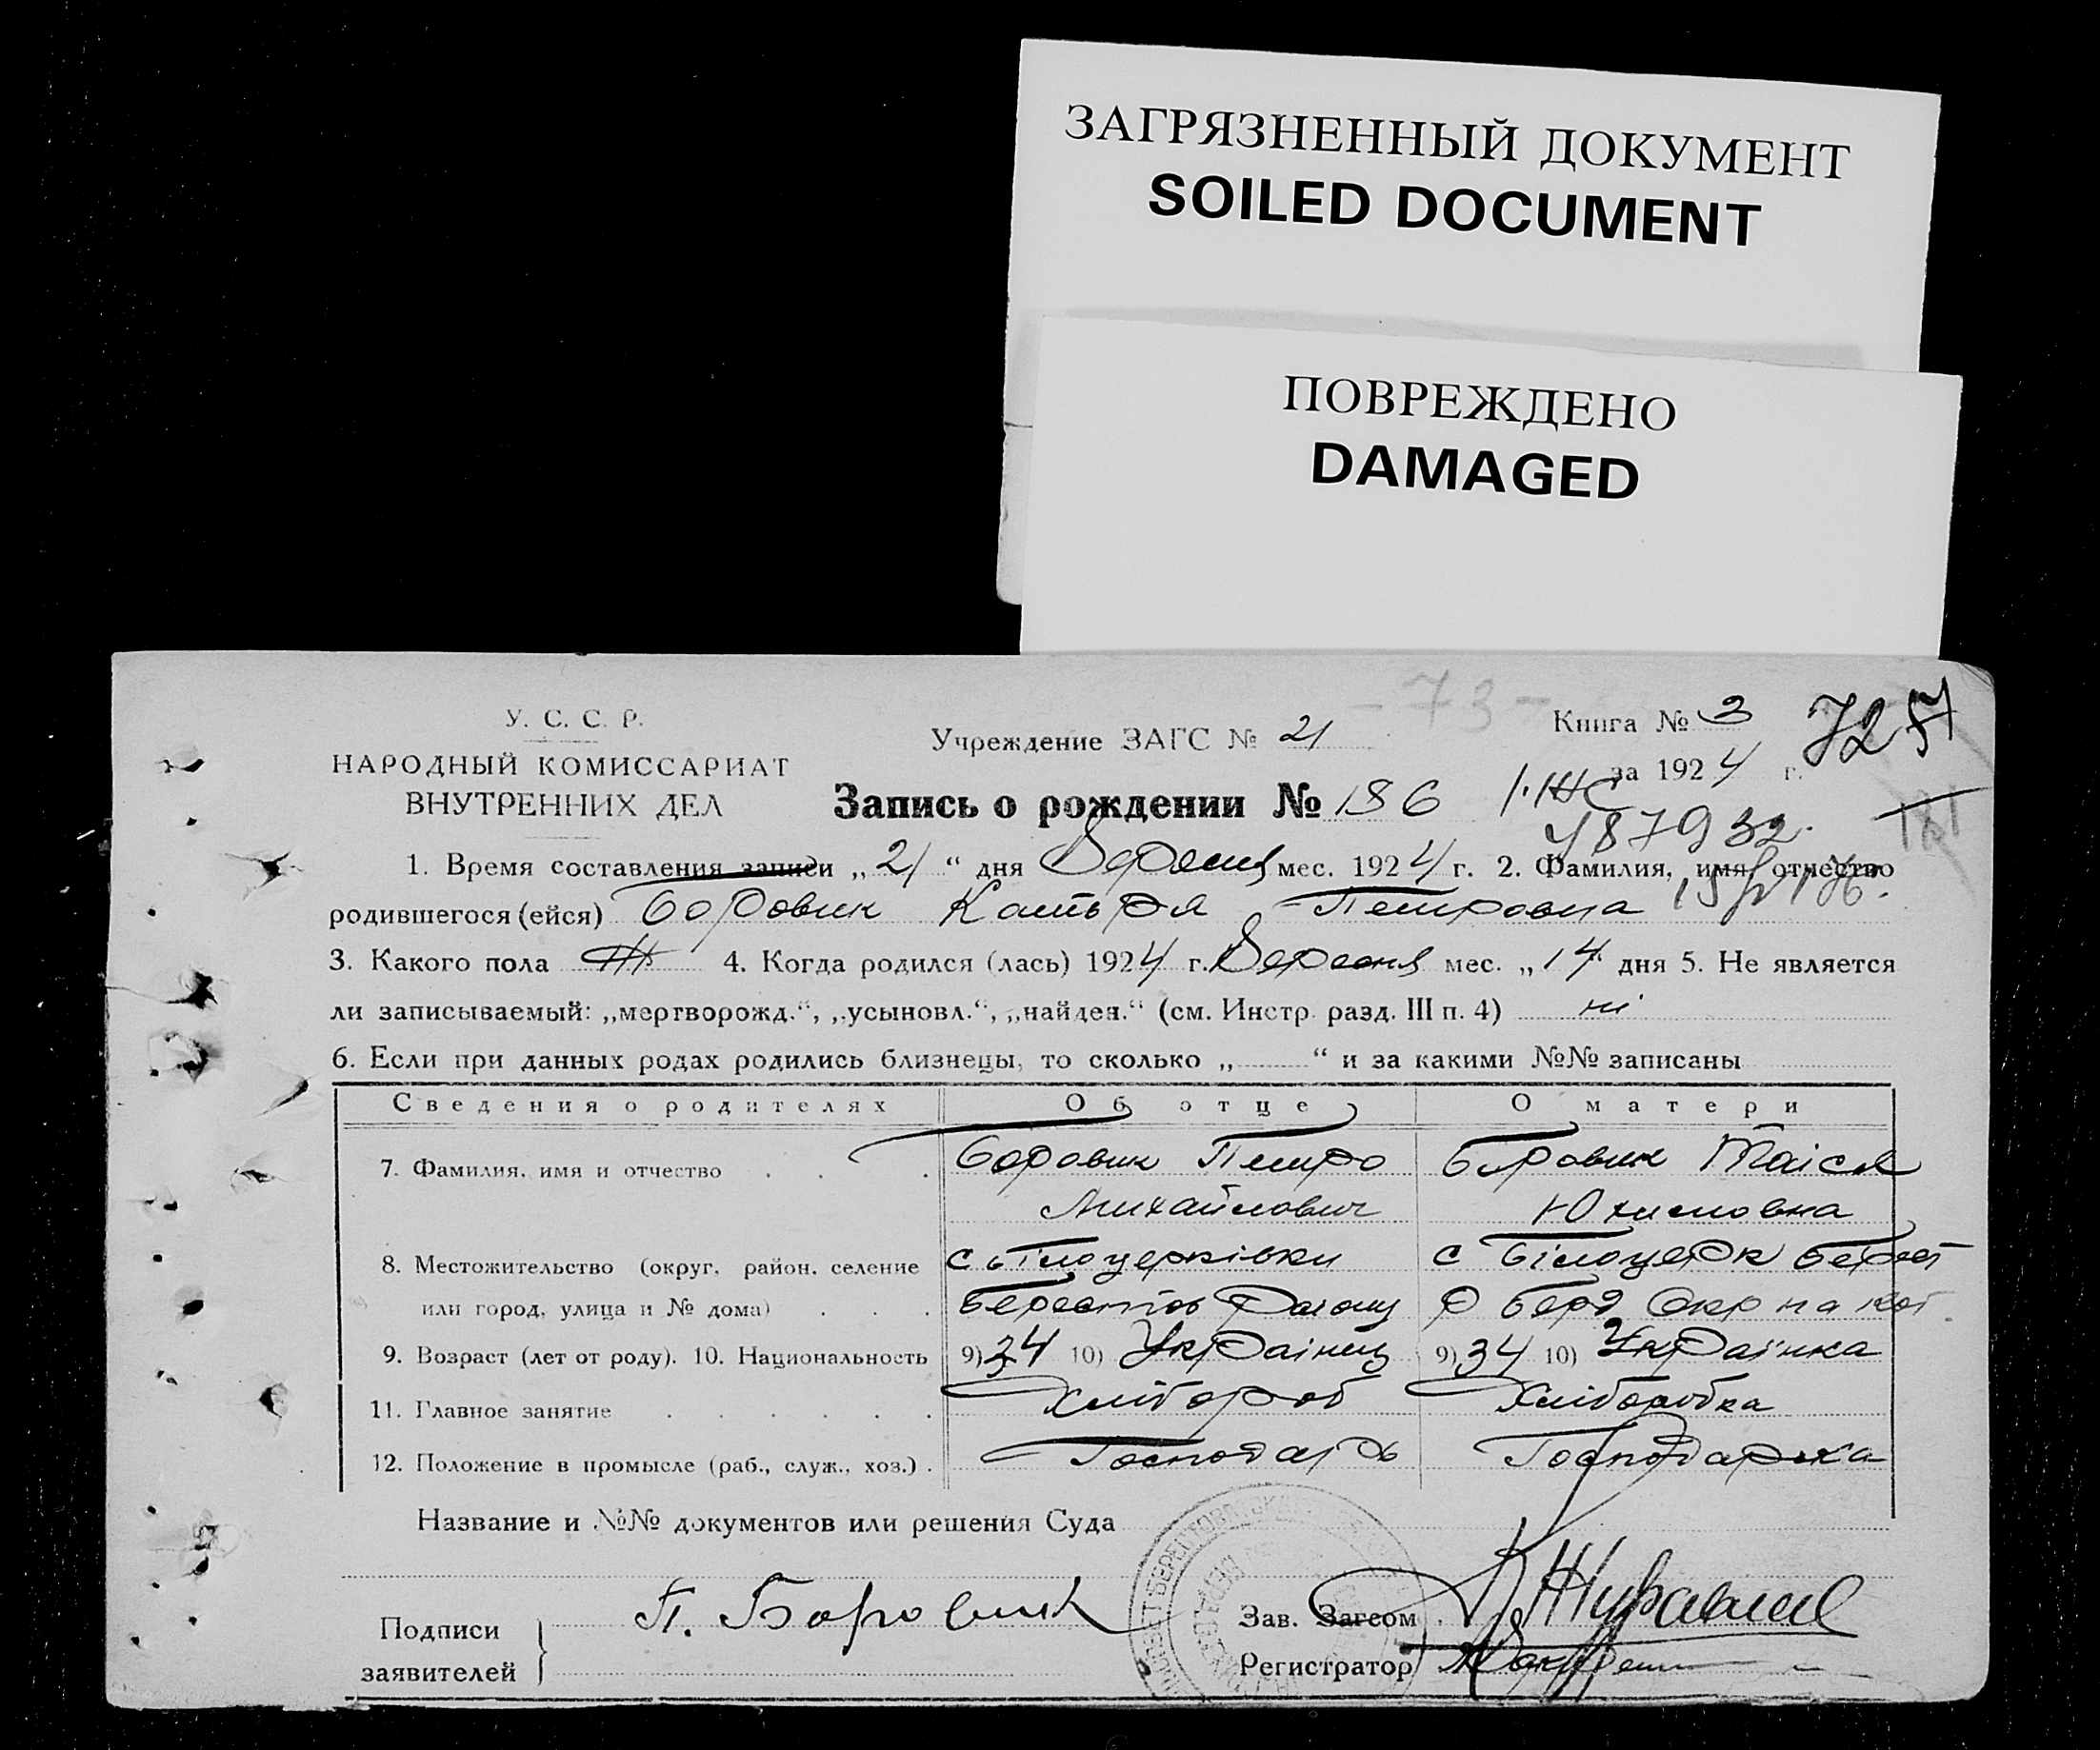 ЗАГРЯЗНЕННЫЙ ДОКУМЕНТ
SOILED DOCUMENT
ПОВРЕЖДЕНО
DAMAGED
- 73 -
У. С. С. Р.
НАРОДНЫЙ КОМИССАРИАТ
ВНУТРЕННИХ ДЕЛ
Учреждение ЗАГС № 21
Книга № 3
за 1924 г.
Запись о рождении № 186
1. Время составления записи „ 21 “ дня Вересня мес. 1924 г. 2. Фамилия, имя, отчество
родившегося (ейся) Боровик Катря Петровна
3. Какого пола Ж 4. Когда родился (лась) 1924 г. Вересня мес. „ 14 дня 5. Не является
ли записываемый: „мертворожд.“, „усыновл.“, „найден.“ (см. Инстр. разд. III п. 4) ні
6. Если при данных родах родились близнецы, то сколько „ “ и за какими №№ записаны
Сведения о родителях Об отце О матери
7. Фамилия, имя и отчество Боровик Петро Боровик Таіся
Михайлович Юхимовна
8. Местожительство (округ, район, селение с Білоцерківки с Білоцерк Берест
или город, улица и № дома) Берестов Району Р Берд Окр
9. Возраст (лет от роду). 10. Национальность 9) 34 10) Украінец 9) 34 10) Украінка
11. Главное занятие Хлібороб Хліборобка
12. Положение в промысле (раб., служ., хоз.) Господарь Господарка
Название и №№ документов или решения Суда
Подписи заявителей П. Боровик
Зав. Загсом
Регистратор